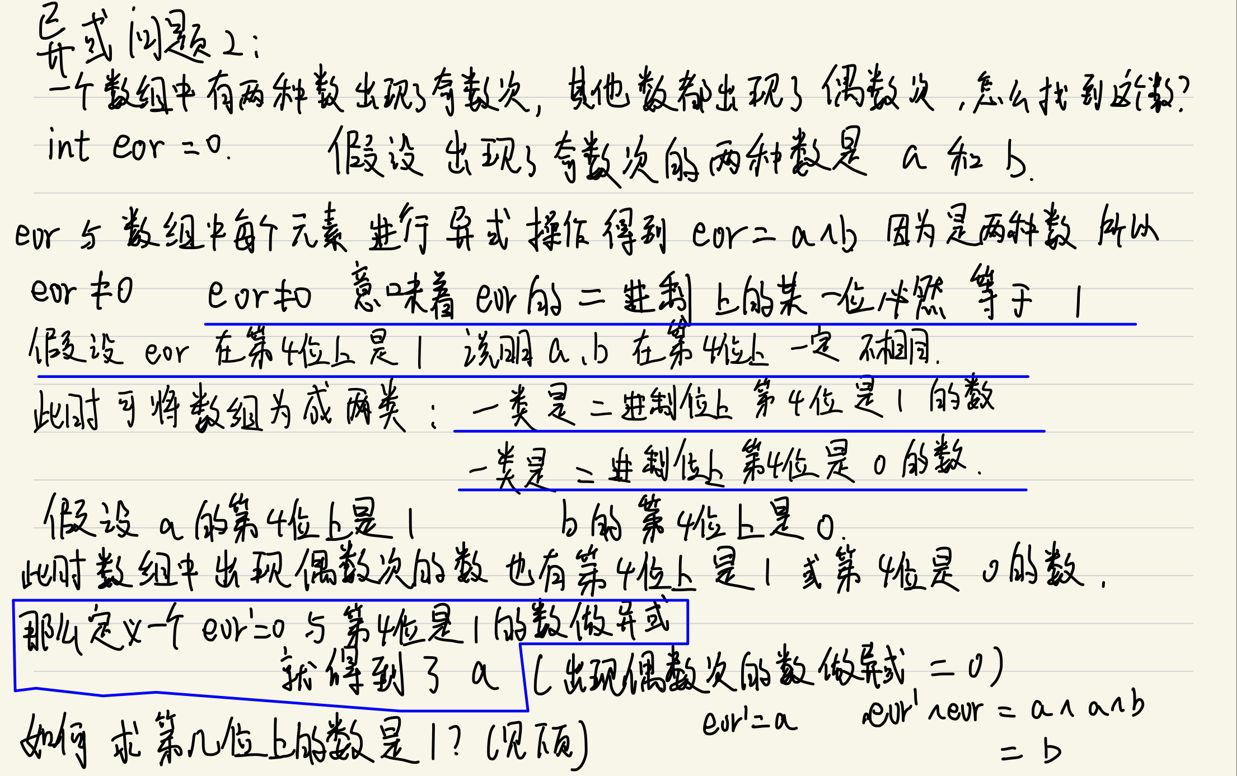 异或问题2:
一个数组中有两种数出现了奇数次，其他数都出现了偶数次，怎么找到这个数?
int eor =0. 假设出现了奇数次的两种数是 a 和 b.
eor 与数组中每个元素进行异或操作得到 eor = a^b 因为是两种数 所以
eor≠0 eor≠0 意味着 eor的二进制上的某一位必然等于 1
假设 eor 在第4位上是1 说明 a、b 在第4位上一定不相同.
此时可将数组为成两类: 一类是二进制位上第4位是1的数
一类是二进制位上第4位是0的数.
假设 a 的第4位上是1 b的第4位上是0.
此时数组中出现偶数次的数也有第4位上是1或第4位是0的数.
那么定义一个 eor'=0 与第4位是1的数做异或
就得到了 a (出现偶数次的数做异或 = 0)
eor'=a eor'^eor = a^a^b
= b
如何求第几位上的数是1? (见下页)